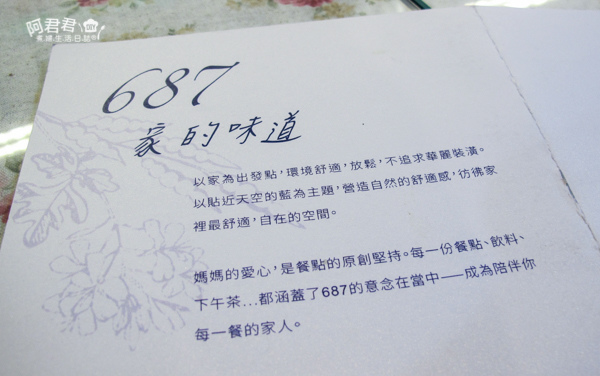 阿君君
DIY
食旅生活日誌
687
家的味道
以家為出發點,環境舒適,放鬆,不追求華麗裝潢。
以貼近天空的藍為主題,營造自然的舒適感,彷彿家
裡最舒適,自在的空間。
媽媽的愛心,是餐點的原創堅持。每一份餐點、飲料、
下午茶...都涵蓋了687的意念在當中——成為陪伴你
每一餐的家人。